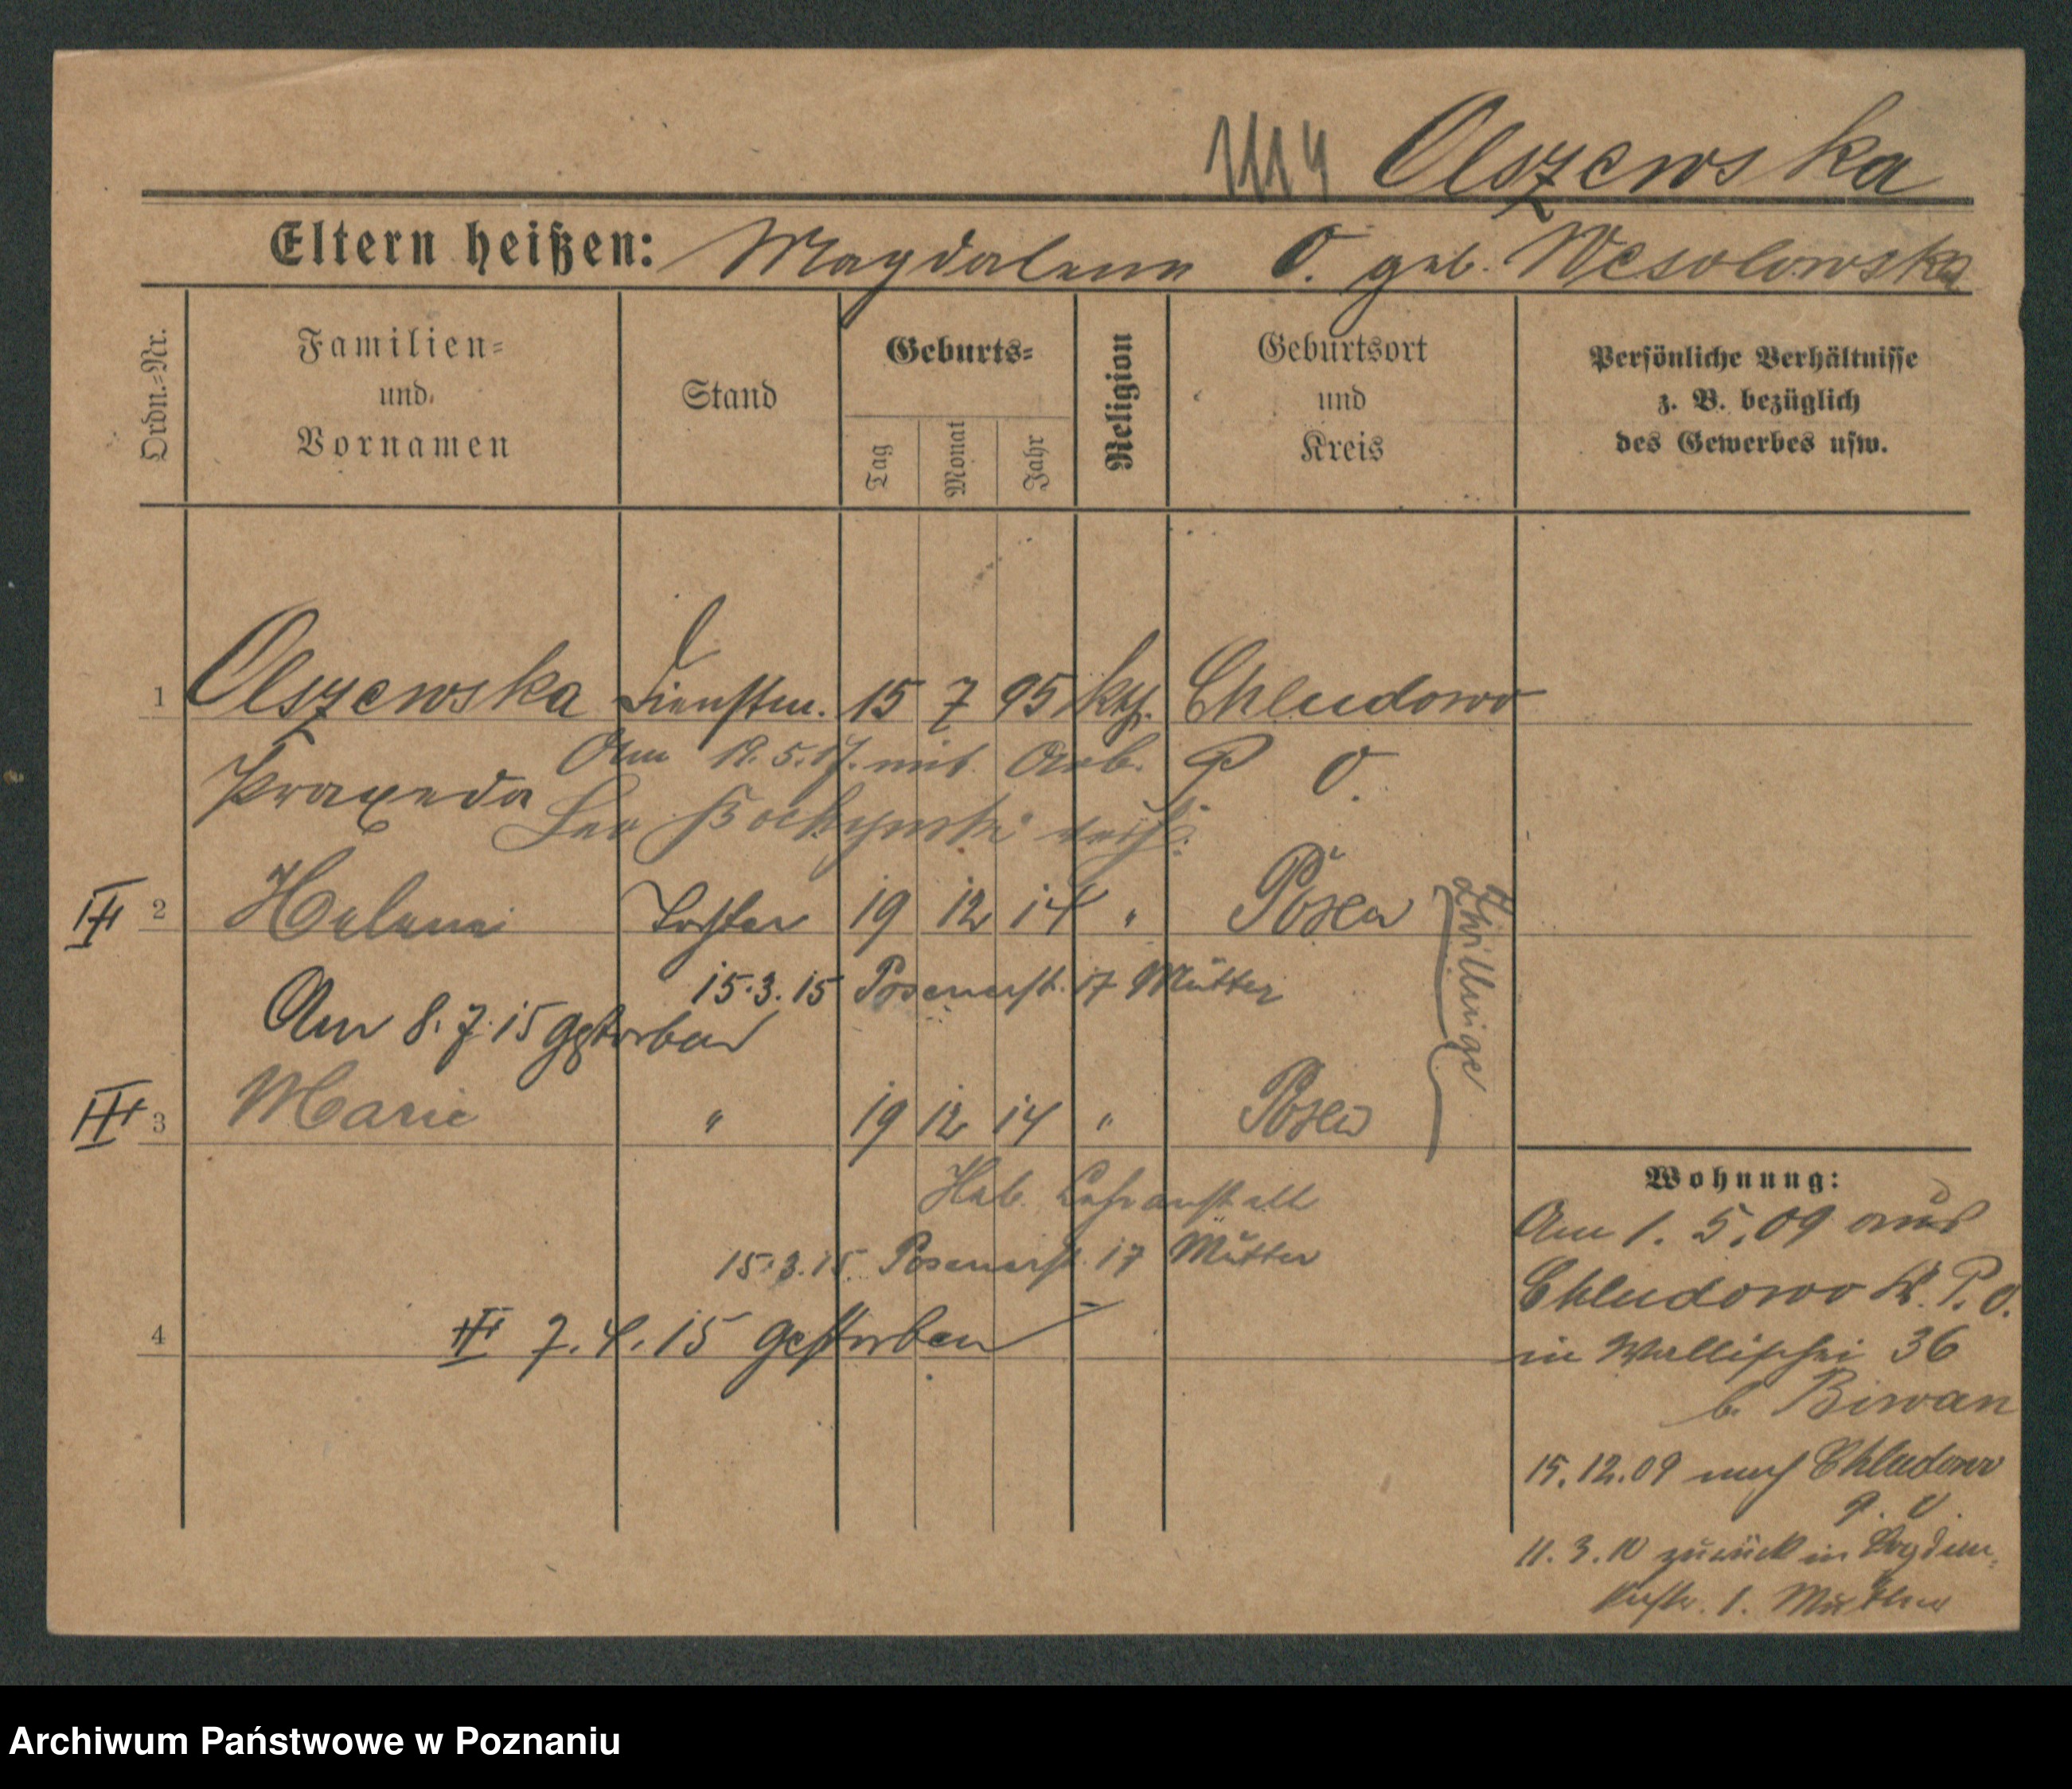 1114 Olszewska
Eltern heißen: Magdalena O. geb. Wesolowska
Ordn.=Nr.
Familien=
und
Vornamen
Stand
Geburts=
Tag
Monat
Jahr
Religion
Geburtsort
und
Kreis
Persönliche Verhältnisse
z. B. bezüglich
des Gewerbes usw.
1 Olszewska Dienstm. 15 7 95 kth. Chludowo
Praxeda Am 19.5.17. mit Arb. P O.
Leo verh.
III 2 Helene Tochter 19 12 14 " Posen
Zwillinge
15.3.15 Posenerst. 17 Mutter
Am 8.7.15 gestorben
III 3 Marie " 19 12 14 " Posen
Heb. Lehranstalt
15.3.15. Posenerst. 17 Mutter
4 III 7.4.15 gestorben
Wohnung:
Am 1.5.09 aus
Chludowo Kr. P. O.
in Wallischei 36
b. Birwan
15.12.09 nach Chludowo
P. O.
11.3.10 zurück in
1. Mutter
Archiwum Państwowe w Poznaniu